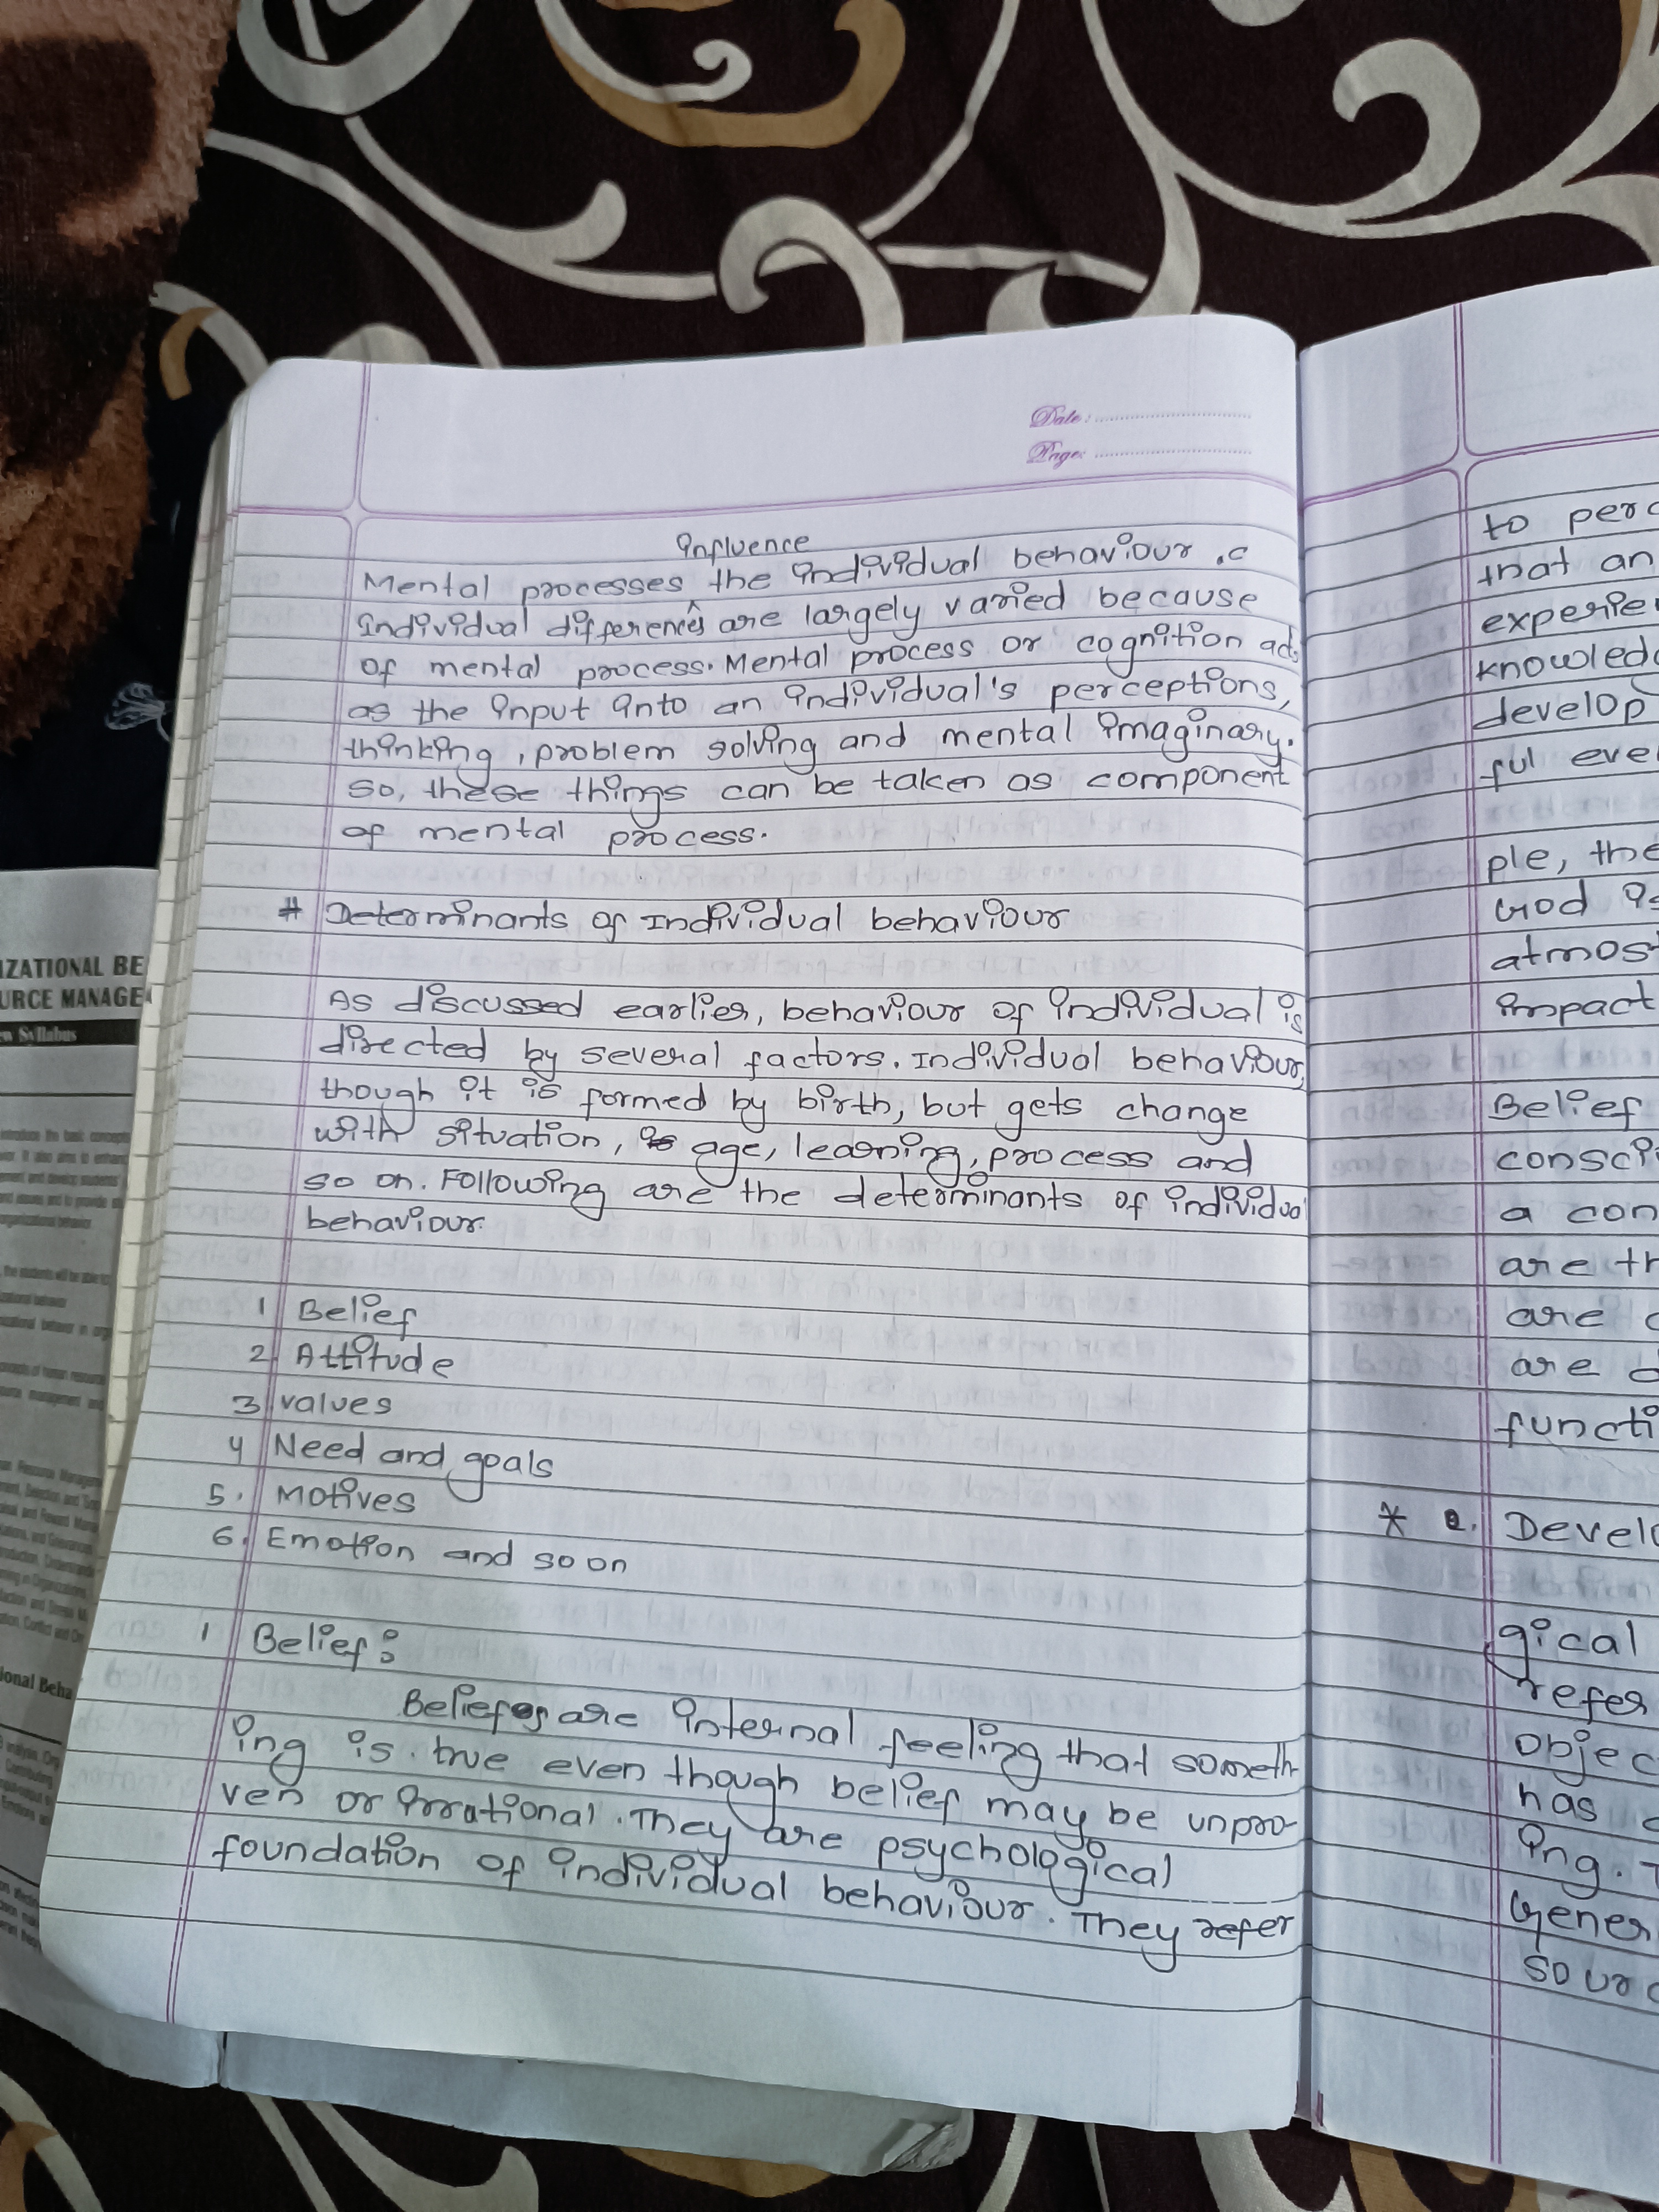 Date:
Page:
Influence
Mental processes ^ the individual behaviour .c
Individual differences are largely varied because
of mental process. Mental process or cognition acts
as the input into an individual's perceptions,
thinking, problem solving and mental imaginary.
so, these things can be taken as component
of mental process.
# Determinants of Individual behaviour
As discussed earlier, behaviour of individual is
directed by several factors. Individual behaviour,
though it is formed by birth, but gets change
with situation, age, learning, process and
so on. Following are the determinants of individual
behaviour.
1 Belief
2. Attitude
3 values
4 Need and goals
5. Motives
6. Emotion and so on
1 Belief:
Beliefs are internal feeling that someth-
ing is true even though belief may be unpro-
ven or irrational. They are psychological
foundation of individual behaviour. They refer
to perc
that an
experie
knowled
develop
ful eve
ple, the
God is
atmos
impact
Belief
consci
a con
are th
are
are d
functi
* 2. Develo
gical
refer
objec
has
ing. T
Gener
sourc
IZATIONAL BE
URCE MANAGE
w Syllabus
ional Beha